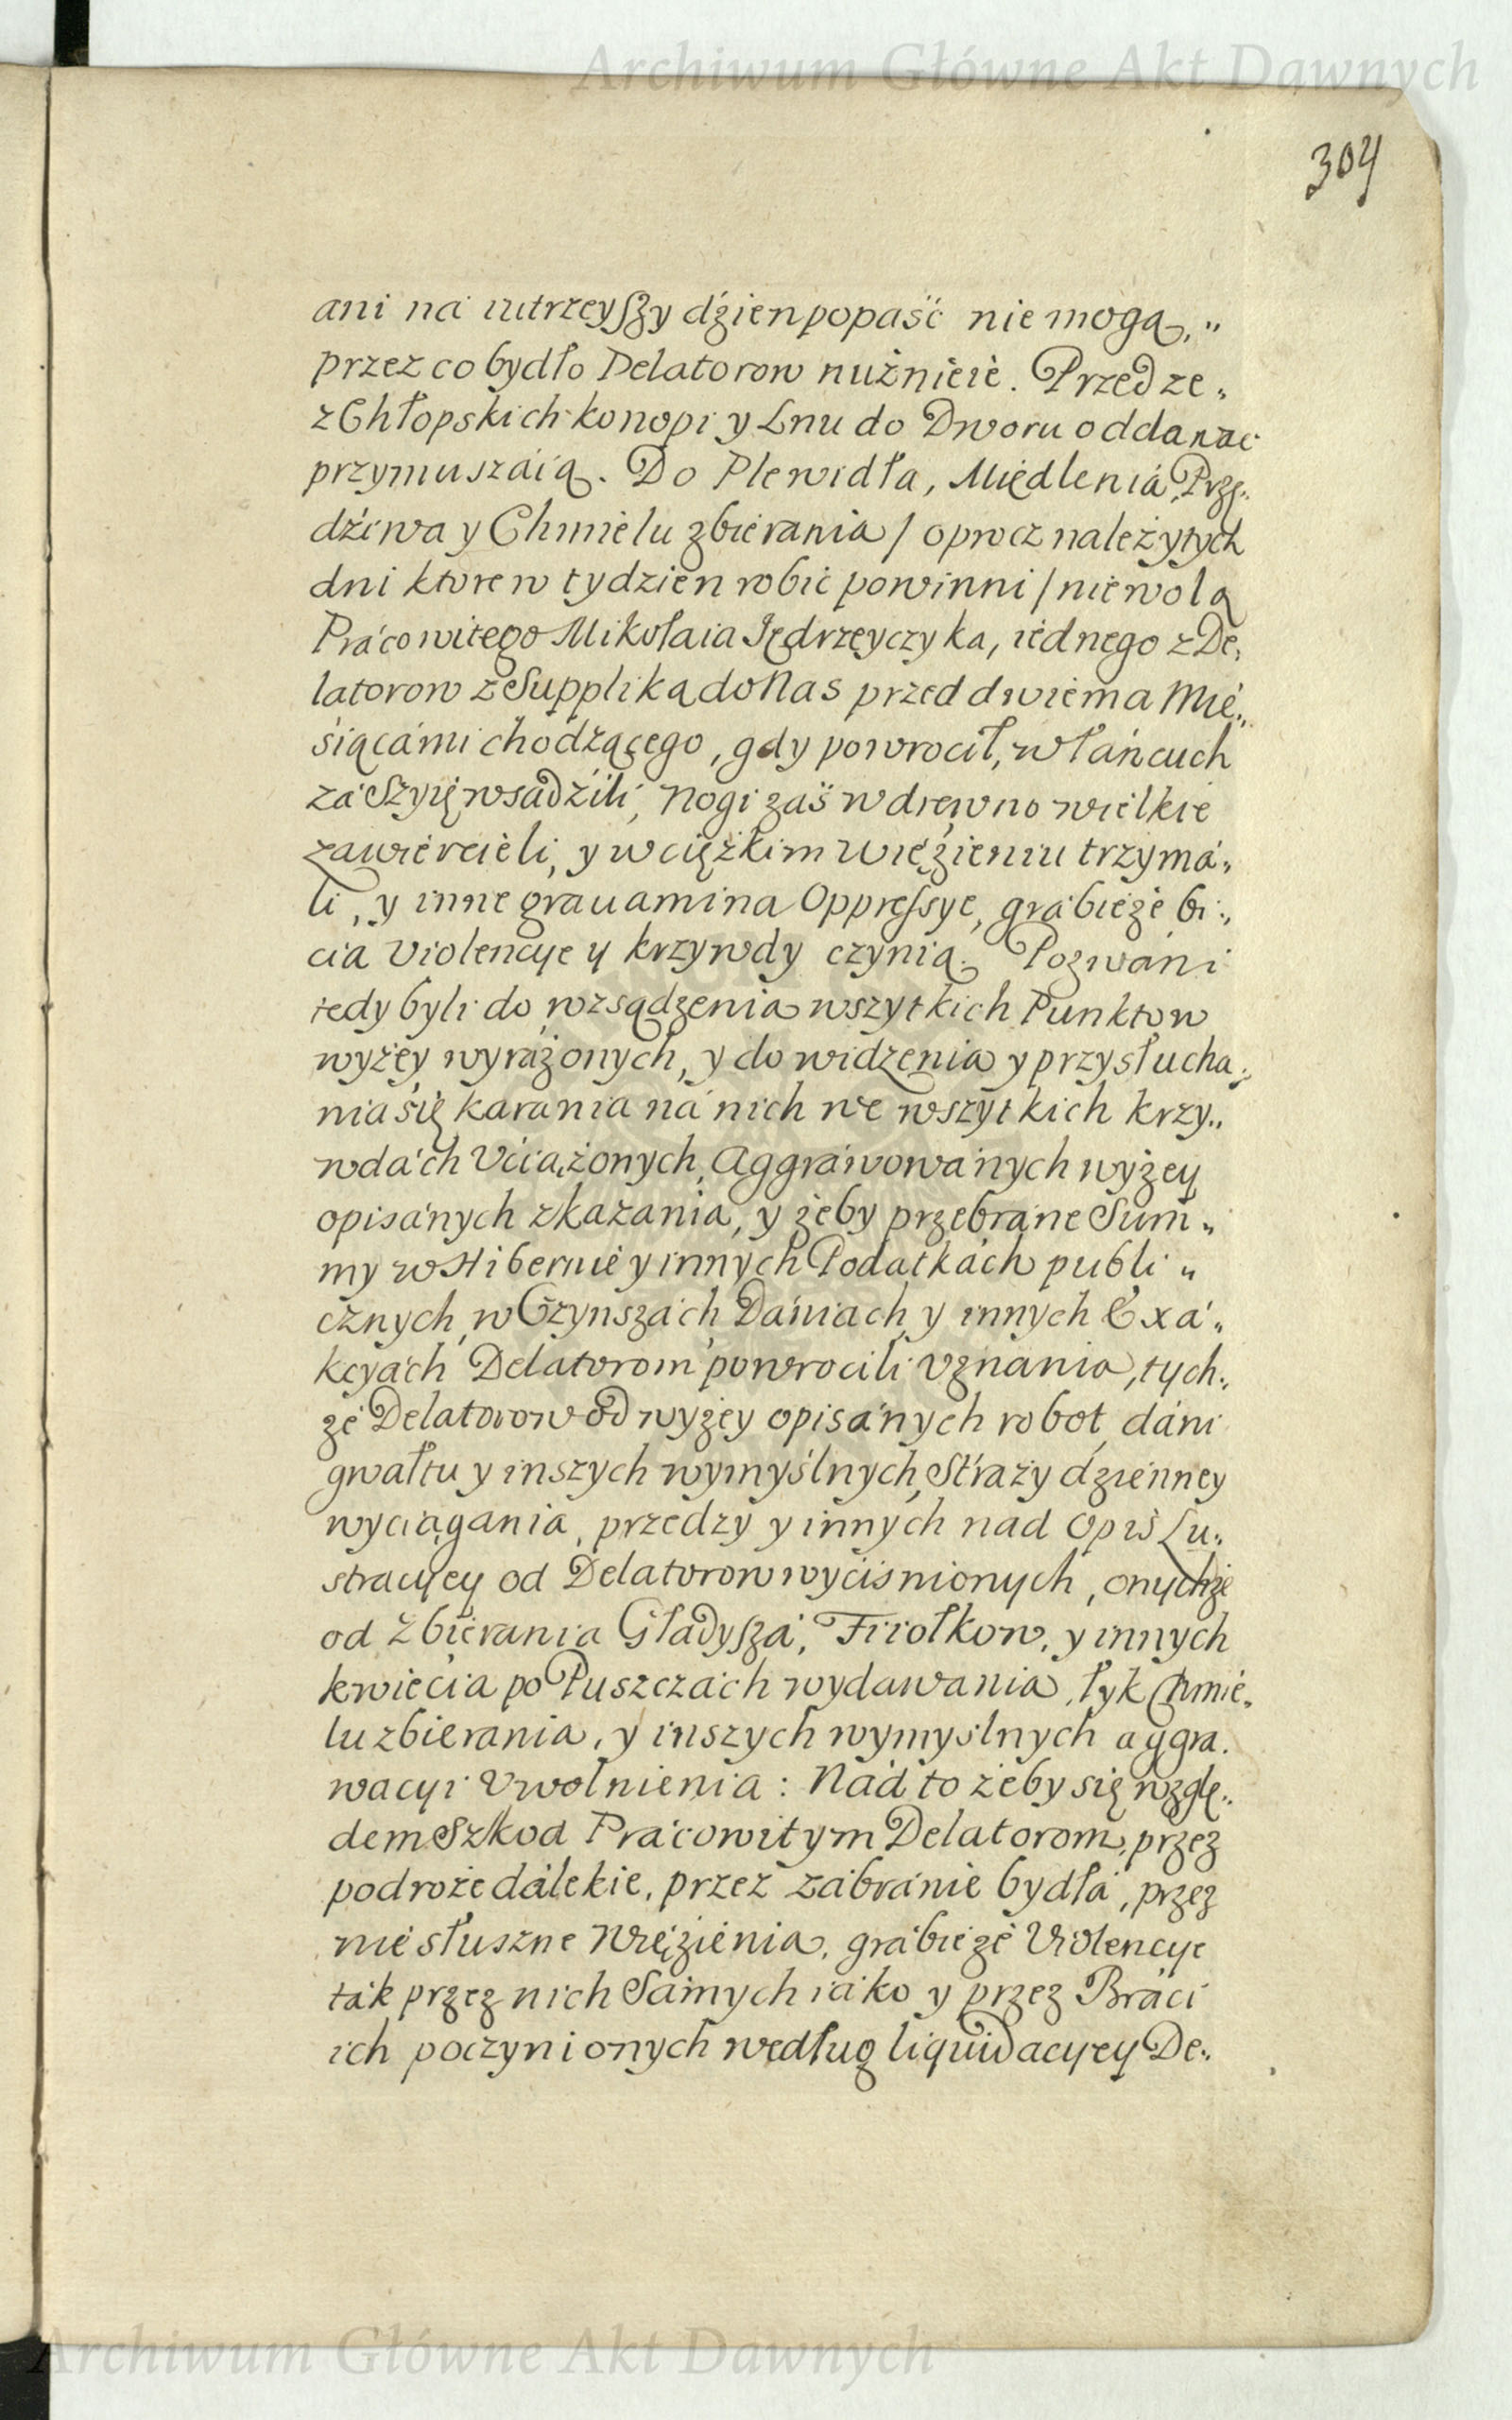 Archiwum Główne Akt Dawnych
304
ani ná iutrzeyſzy dźien popaść nie mogą, „
przez co bydło Delatorow nużnieie. Przedze„
z Chłopskich konopi y Lnu do Dworu oddawac
przymuszáią. Do Plewidła, Międlenia, Prżę„
dźiwa y Chmielu zbierania / oprocz należytych
dni ktore w tydzien robić powinni / niewolą
Prácowitego Mikołaia Jędrzeyczyka, iednego z De„
latorow z Suppliką do Nas przed dwiema Mie„
śiącámi chodżącego, gdy powrocił, w łáncuch
zá Szyię wsadźili, Nogi záś w drewno wielkie
zawiercieli, y w ciężkim więźieniu trzymá„
li, y inne grauamina Oppreſsye, grábieże bi„
cia Violencye y krzywdy czynią. Pozwáni
tedy byli do rozsądzenia wszytkich Punktow
wyżey wyráżonych, y do widzenia y przysłucha„
nia się karania ná nich we wszytkich krzy„
wdách Vciążonych, Aggráwowánych wyżey
opisánych zkazania, y żeby przebráne Sum„
my w Hibernie y innych Podatkách publi„
cznych, w Czynszách, Dániach, y innych Exá„
kcyách Delatorom powrocili Vznania, tych„
że Delatorow od wyżey opisánych robot, dáni
gwałtu y inszych wymyślnych, Straży dzienney
wyciągania, przedzy y innych nad Opis Lu„
stracyey od Delatorow wycisnionych, onychże
od Zbierania Gładyszá, Fiiołkow, y innych
kwiecia po Puszczách wydawania, łyk Chmie„
lu zbierania, y inszych wymyslnych aggra„
wacyi Vwolnienia : Nád to żeby się wzglę„
dem Szkod Prácowitym Delatorom, przez
podroże dálekie, przez zábránie bydłá, przez
niesłuszne Więźienia, grábieże Violencye
ták przez nich Sámych iáko y przez Bráci
ich poczynionych według liquidacyey De„
Archiwum Główne Akt Dawnych